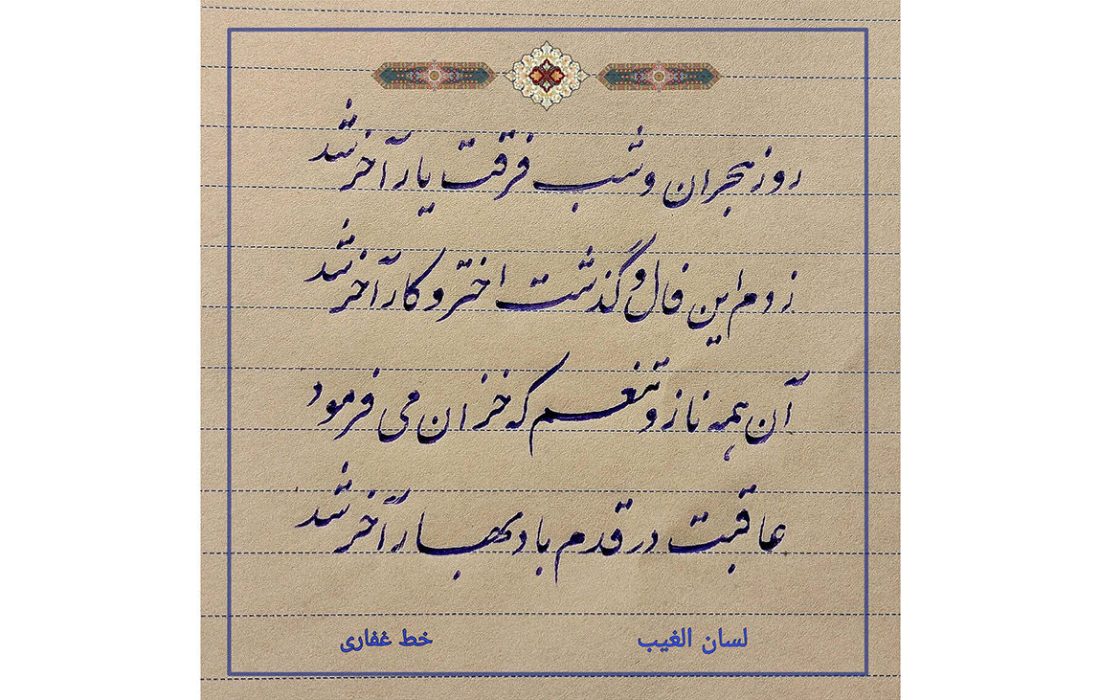 روز هجران و شب فرقت یار آخر شد
زدم این فال و گذشت اختر و کار آخر شد
آن همه ناز و تنعم که خزان می فرمود
عاقبت در قدم باد بهار آخر شد
لسان الغیب
خط غفاری